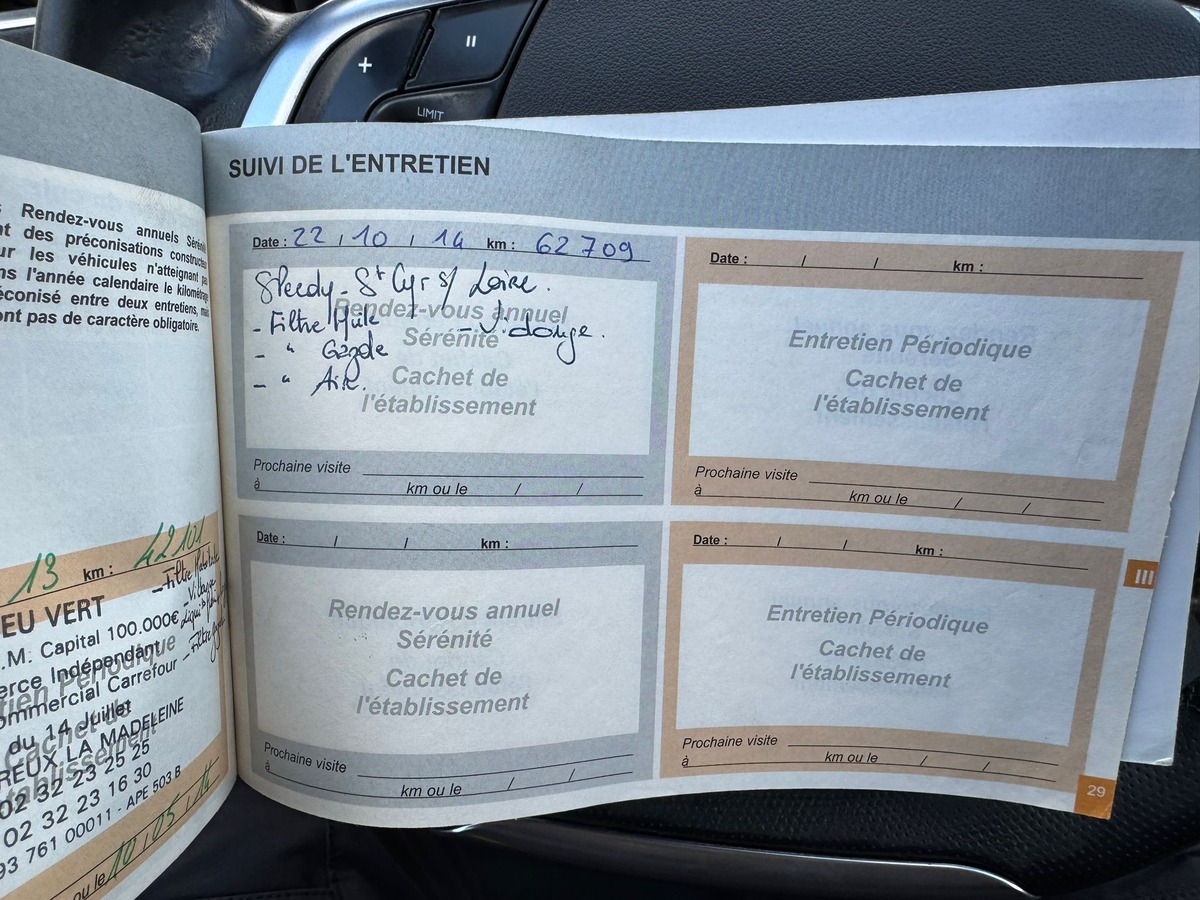 +
II
LIMIT
Rendez-vous annuels
des préconisations
les véhicules n'atteignant
l'année calendaire le
entre deux entretiens,
pas de caractère obligatoire.
13 km : 42101
EU VERT
Capital 100.000€
Indépendant
Carrefour
du 14 Juillet
LA MADELEINE
02 32 23 25 25
02 32 23 16 30
761 00011 - APE 503 B
ou le 10 / 05 / 14
SUIVI DE L'ENTRETIEN
Date : 22 / 10 / 14 km : 62 709
Speedy - St Cyr s/ Loire.
- Filtre Huile - Vidange.
- " Gazole
- " Air.
Rendez-vous annuel
Sérénité
Cachet de
l'établissement
Prochaine visite
à km ou le / /
Date : / / km :
Entretien Périodique
Cachet de
l'établissement
Prochaine visite
à km ou le / /
Date : / / km :
Rendez-vous annuel
Sérénité
Cachet de
l'établissement
Prochaine visite
à km ou le / /
Date : / / km :
Entretien Périodique
Cachet de
l'établissement
Prochaine visite
à km ou le / /
III
29